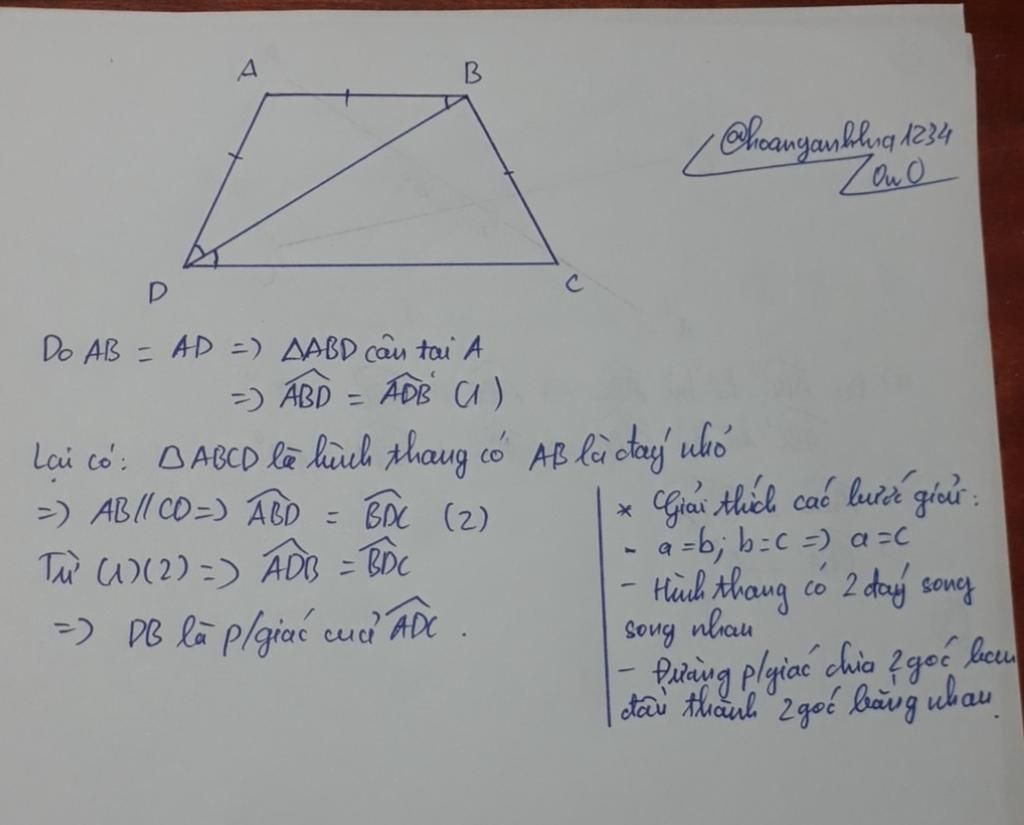 A
B
@hoanganhhna1234
OwO
D
C
Do AB = AD => △ABD cân tại A
=> ABD = ADB (1)
Lại có: △ABCD là hình thang có AB là đáy nhỏ
=> AB // CD => ABD = BDC (2)
Từ (1)(2) => ADB = BDC
=> DB là p/giác của ADC.
* Giải thích các bước giải:
- a=b; b=c => a=c
- Hình thang có 2 đáy song
song nhau
- Đường p/giác chia 2 góc ban
đầu thành 2 góc bằng nhau.